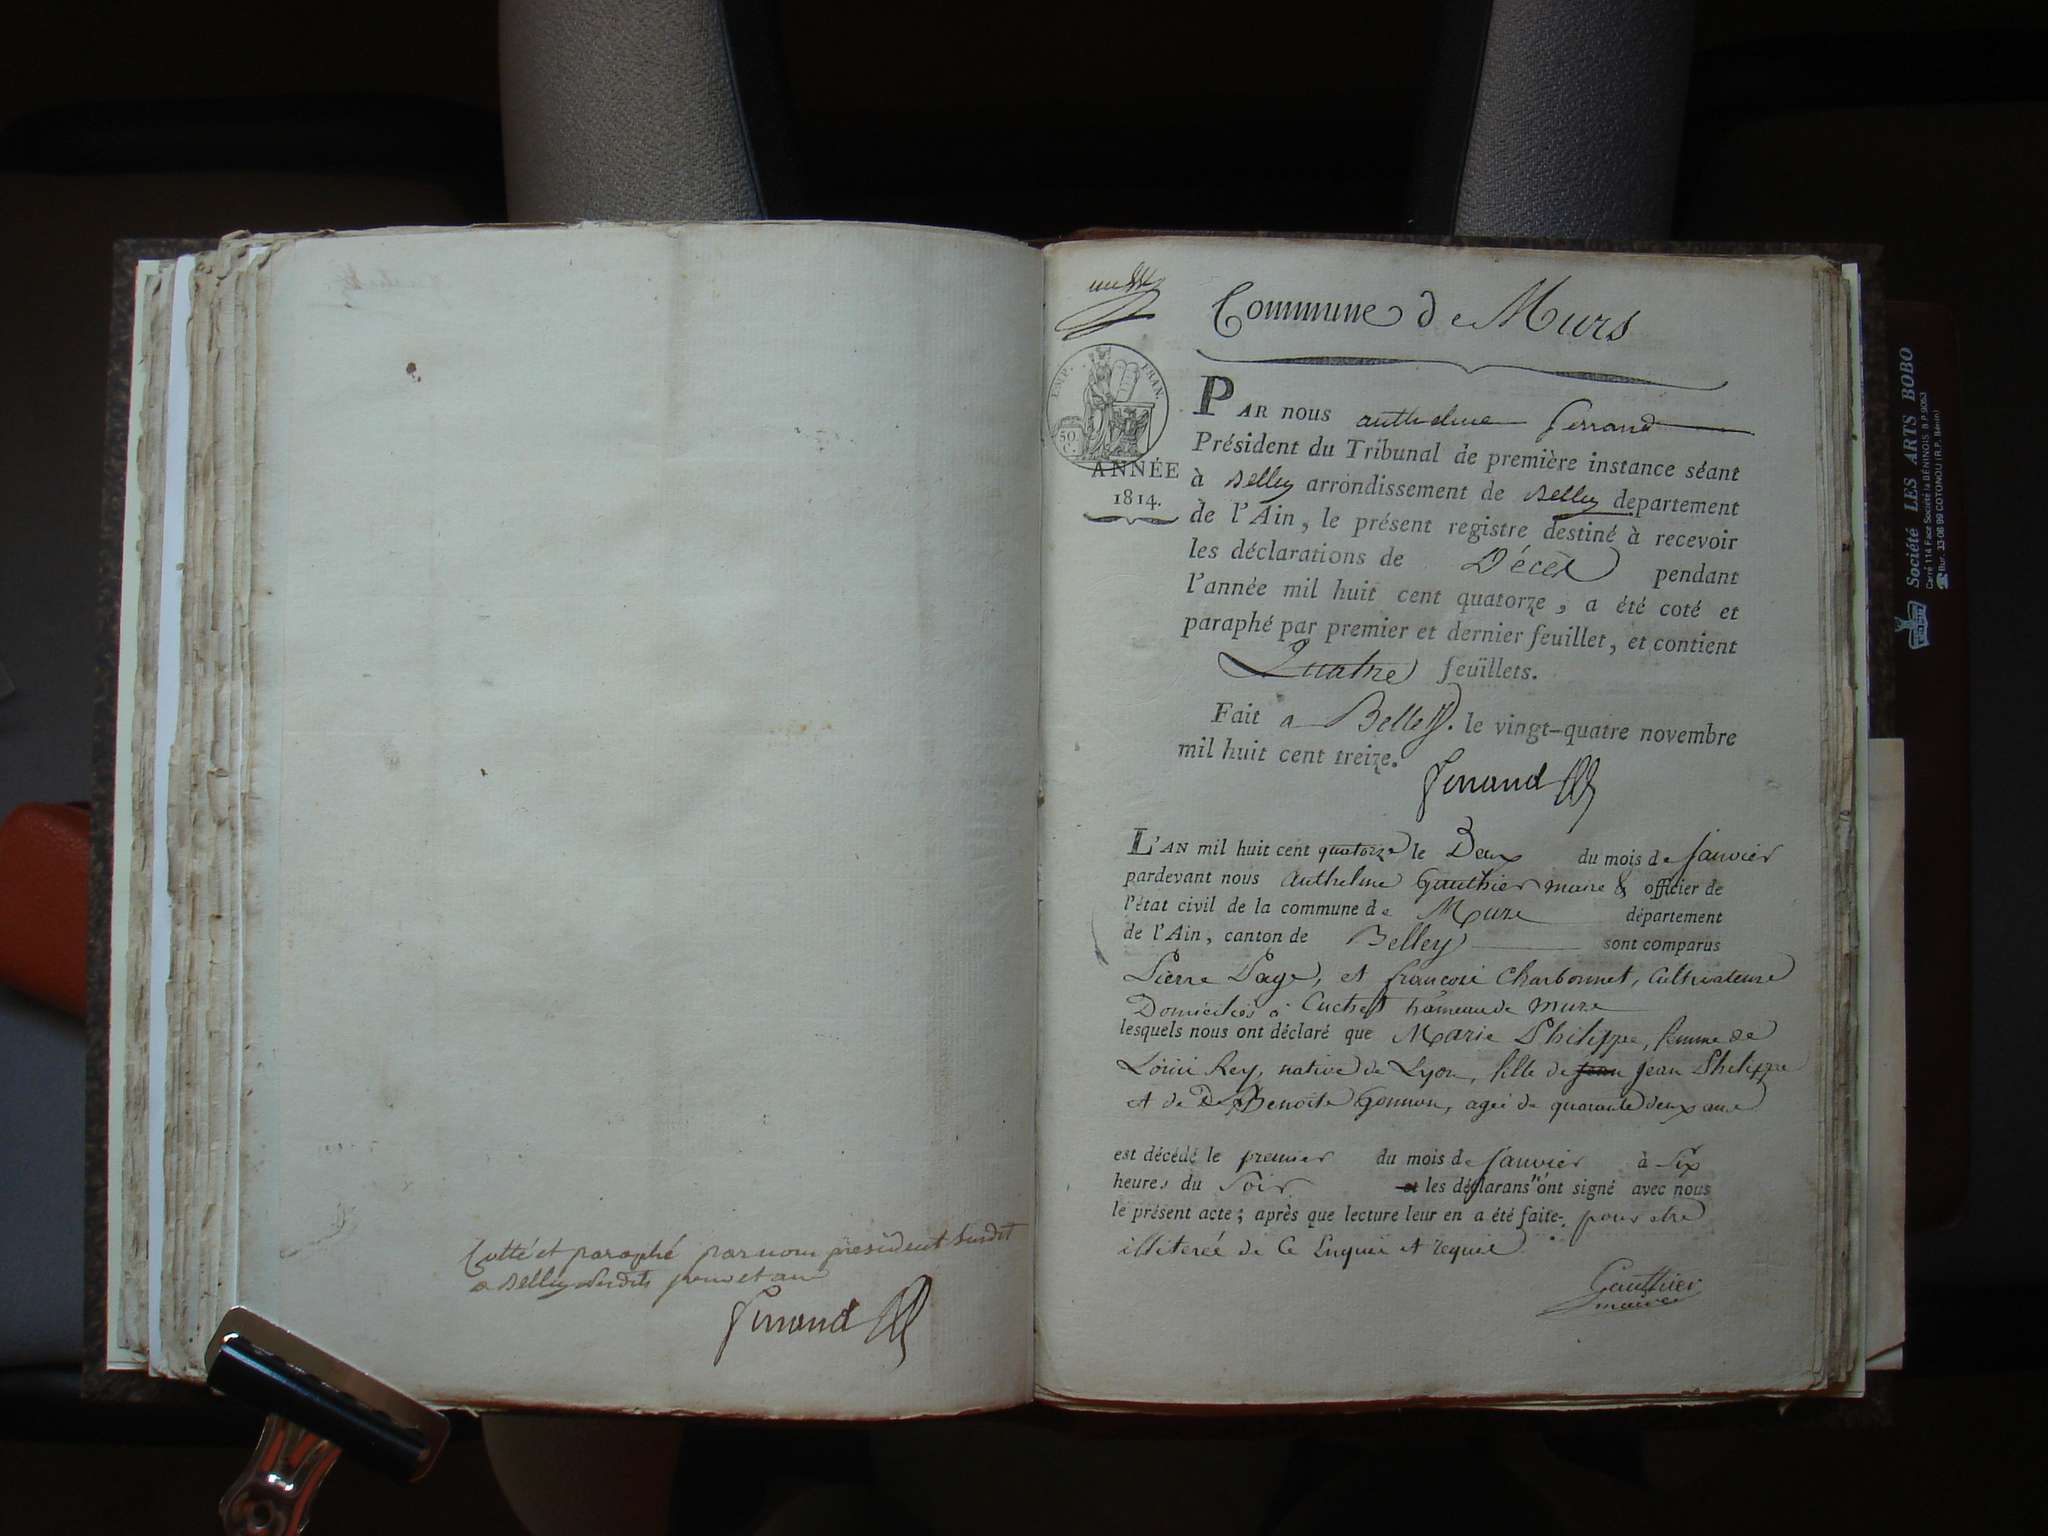 Cotté et paraphé par nous président susdit
a Belley susdits jour et an
Ferrand
Commune de Murs
EMP. FRAN.
50 C.
ANNÉE
1814.
PAR nous anthelme ferrand
Président du Tribunal de première instance séant
à Belley arrondissement de Belley departement
de l'Ain, le présent registre destiné à recevoir
les déclarations de Décès pendant
l'année mil huit cent quatorze, a été coté et
paraphé par premier et dernier feuillet, et contient
Quatre feuillets.
Fait a Belley. le vingt-quatre novembre
mil huit cent treize.
Ferrand
L'AN mil huit cent quatorze le Deux du mois de Janvier
pardevant nous Anthelme Gauthier maire & officier de
l'état civil de la commune de Murs département
de l'Ain, canton de Belley sont comparus
Pierre Page, et françois Charbonnet, Cultivateurs
Domiciliés à Cuchet hameau de Murs
lesquels nous ont déclaré que Marie Philippe, femme de
Louis Rey, native de Lyon, fille de Jean Jean Philippe
et de De Benoite Gonnon, agée de quarante deux ans
est décédé le premier du mois de Janvier à Six
heures du Soir et les déclarans n'ont signé avec nous
le présent acte; après que lecture leur en a été faite. pour etre
illiterés de Ce Enquis et requis
Gauthier
maire
Société LES ARTS BOBO
Carré 114 Face Société la BÉNINOIS. B.P. 9053
☎ Bur. 33 06 99 COTONOU (R.P. Bénin)